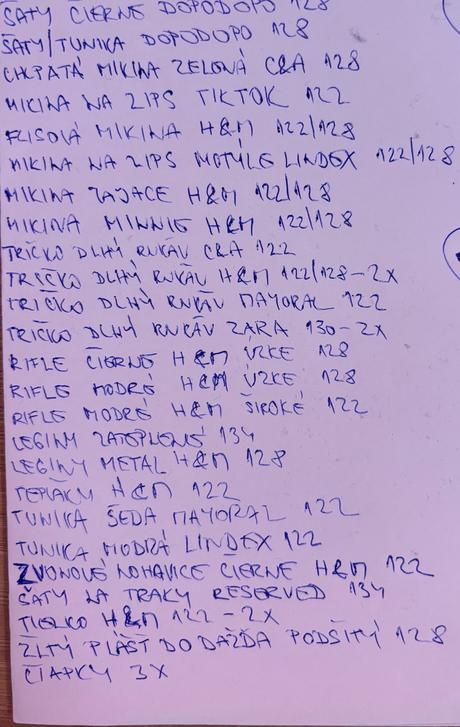 ŠATY ČIERNE DOPODOPO 128
ŠATY/TUNIKA DOPODOPO 128
CHLPATÁ MIKINA ZELENÁ C&A 128
MIKINA NA ZIPS TIKTOK 122
FLISOVÁ MIKINA H&M 122/128
MIKINA NA ZIPS MOTÝLE LINDEX 122/128
MIKINA ZAJACE H&M 122/128
MIKINA MINNIE H&M 122/128
TRIČKO DLHÝ RUKÁV C&A 122
TRIČKO DLHÝ RUKÁV H&M 122/128-2X
TRIČKO DLHÝ RUKÁV MAYORAL 122
TRIČKO DLHÝ RUKÁV ZARA 130-2X
RIFLE ČIERNE H&M ÚZKE 128
RIFLE MODRÉ H&M ÚZKE 128
RIFLE MODRÉ H&M ŠIROKÉ 122
LEGINY ZATEPLENÉ 134
LEGINY METAL H&M 128
TEPLÁKY H&M 122
TUNIKA ŠEDÁ MAYORAL 122
TUNIKA MODRÁ LINDEX 122
ZVONOVÉ NOHAVICE ČIERNE H&M 122
ŠATY NA TRAKY RESERVED 134
TIELKO H&M 122-2X
ŽLTÝ PLÁŠŤ DO DAŽĎA PODŠITÝ 128
ČIAPKY 3X